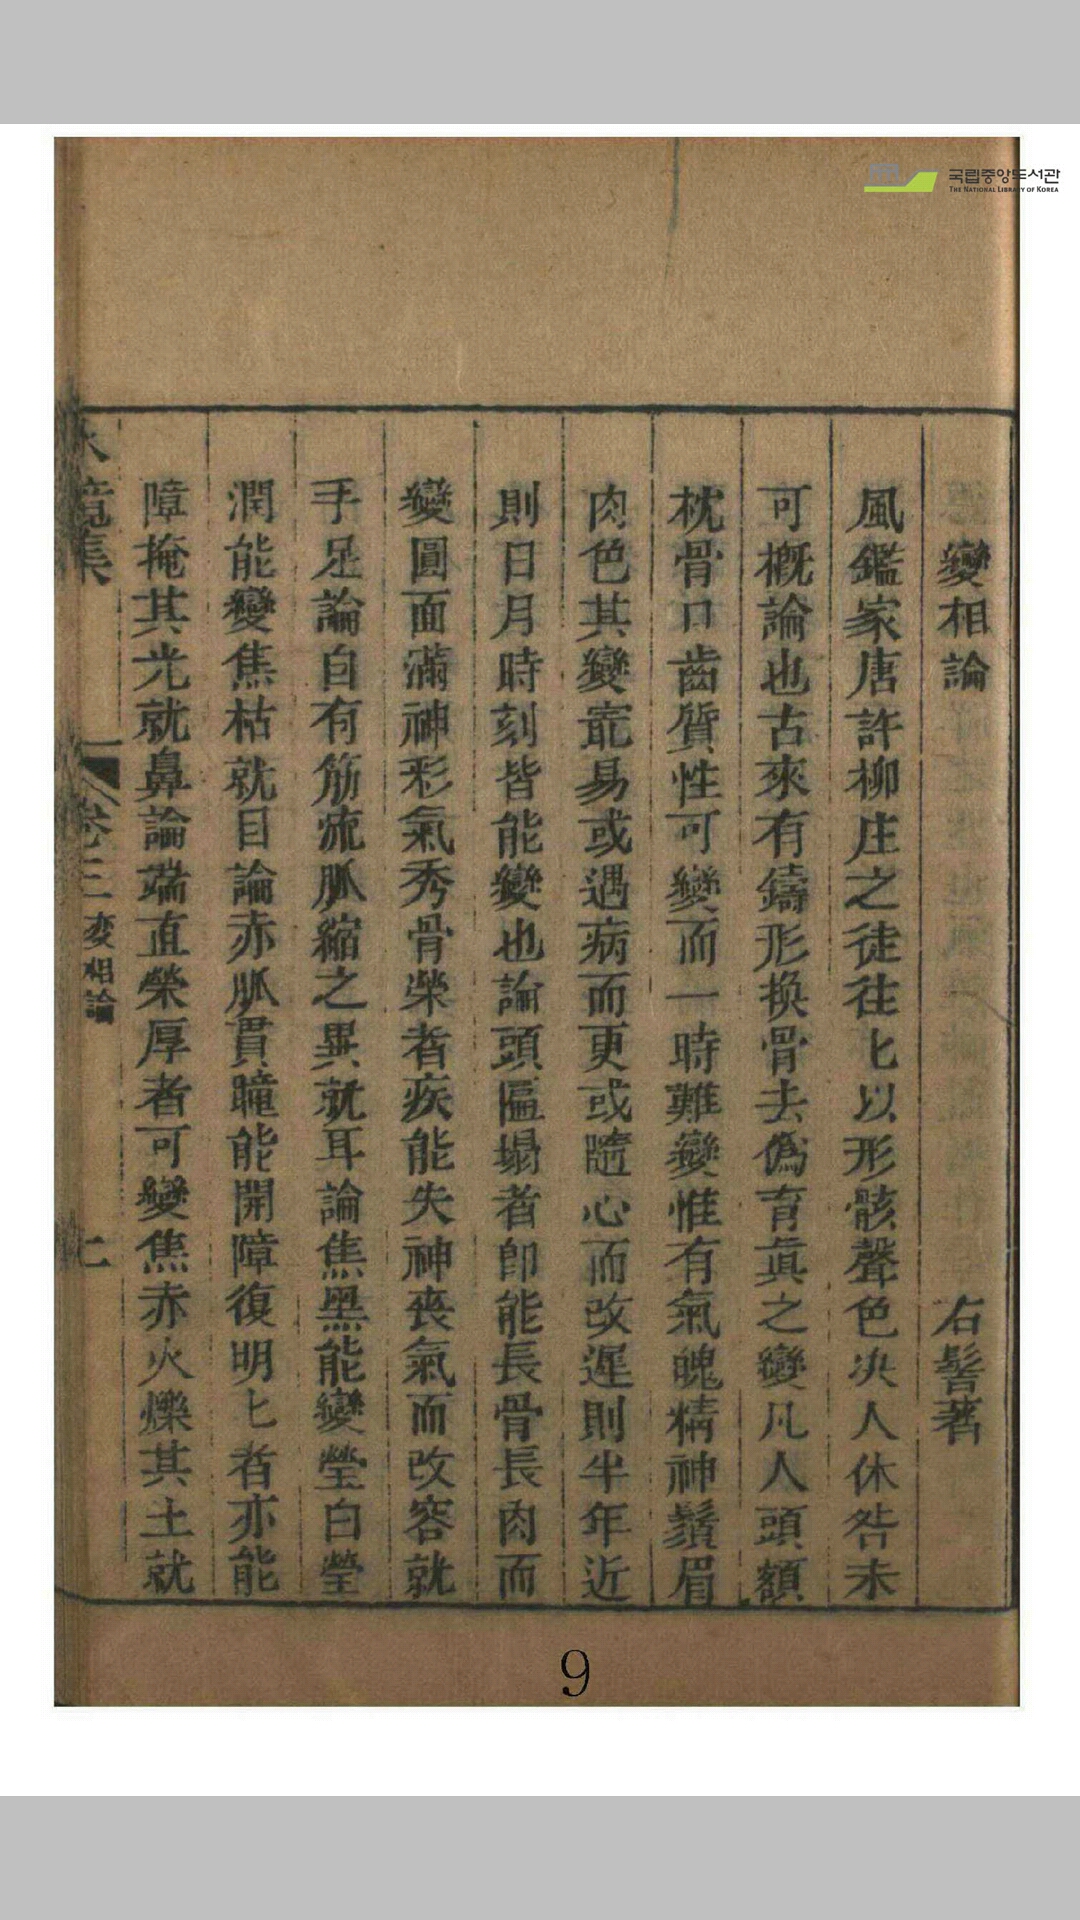 國립중앙도서관
THE NATIONAL LIBRARY OF KOREA
變相論 右髻著
風鑑家唐許柳庄之徒往匕以形骸聲色决人休咎未
可概論也古來有鑄形換骨去僞育眞之變凡人頭額
枕骨口齒質性可變而一時難變惟有氣魄精神鬚眉
肉色其變寔易或遇病而更或隨心而改遲則半年近
則日月時刻皆能變也論頭匾塌者卽能長骨長肉而
變圓面滿神彩氣秀骨榮者疾能失神喪氣而改容就
手足論自有筋疏脈縮之異就耳論焦黑能變瑩白瑩
潤能變焦枯就目論赤脈貫瞳能開障復明匕者亦能
障掩其光就鼻論端直榮厚者可變焦赤火爍其土就
水鏡集 卷三 変相論 七
9